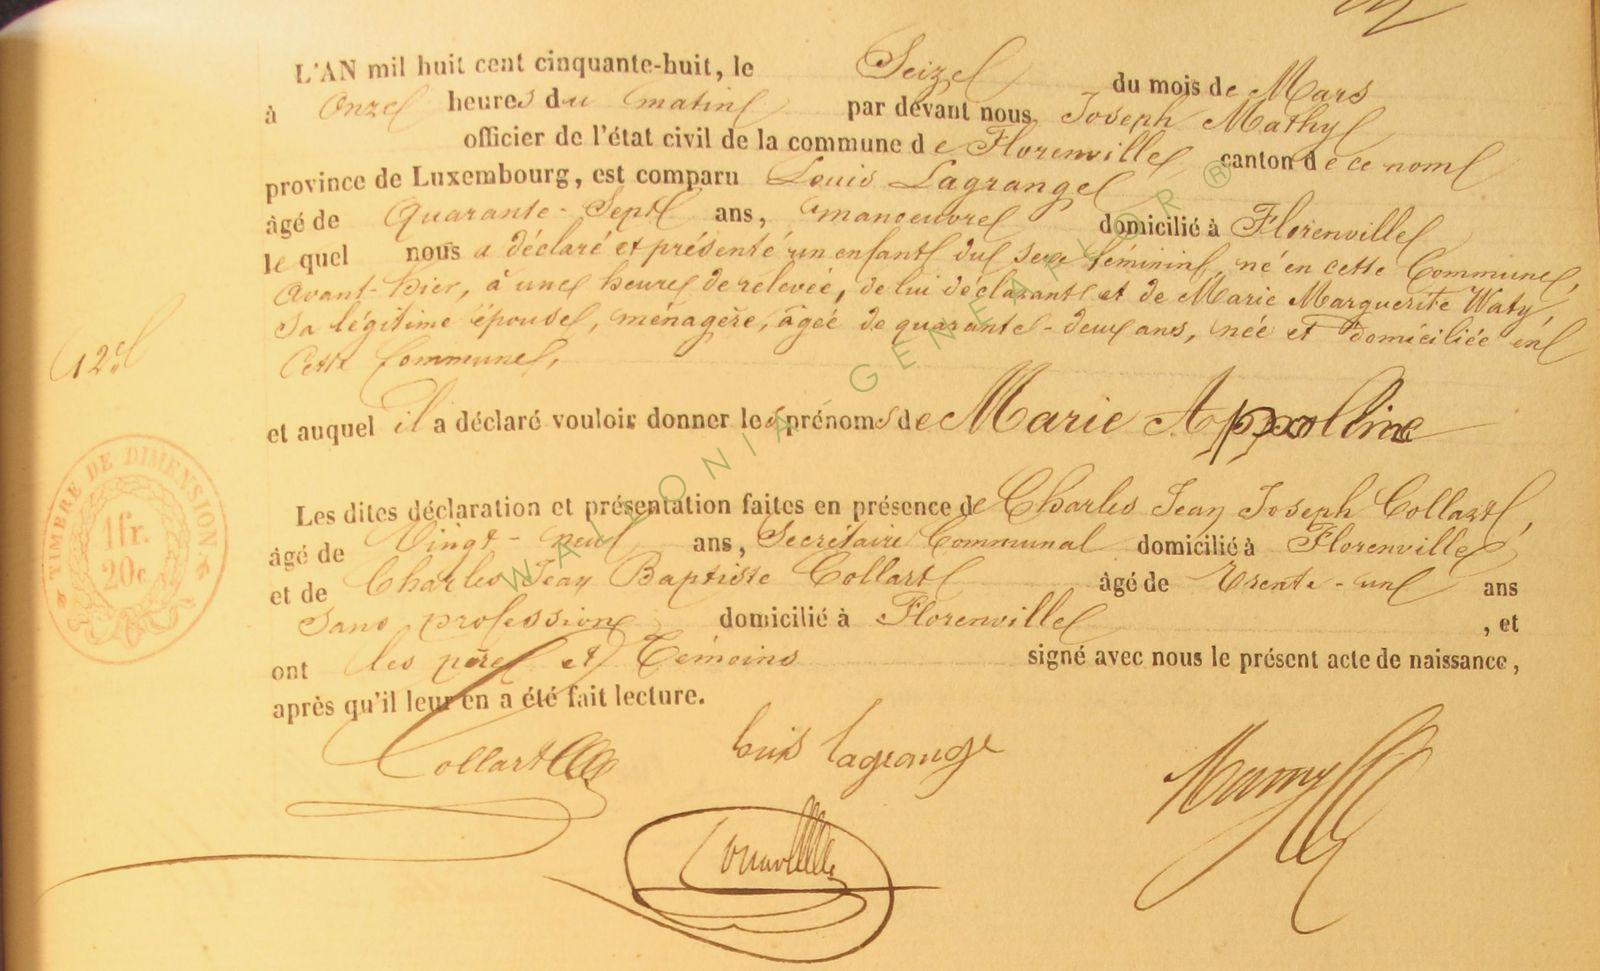 L'AN mil huit cent cinquante-huit, le Seize du mois de Mars
à Onze heures du matin par devant nous Joseph Mathy
officier de l'état civil de la commune de Florenville canton de ce nom
province de Luxembourg, est comparu Louis Lagrange
âgé de Quarante-Sept ans, manoeuvre domicilié à Florenville
le quel nous a déclaré et présenté un enfant du sexe féminin, né en cette Commune,
Avant-hier, à une heure de relevée, de lui déclarant et de Marie Marguerite Waty,
Sa légitime épouse, ménagère, âgée de quarante-deux ans, née et Domiciliée en
Cette Commune,
12e
et auquel il a déclaré vouloir donner les prénoms de Marie Appolline
TIMBRE DE DIMENSION
1 fr.
20c
Les dites déclaration et présentation faites en présence de Charles Jean Joseph Collart,
âgé de Vingt-neuf ans, Secrétaire Communal domicilié à Florenville
et de Charles Jean Baptiste Collart âgé de Trente-un ans
Sans profession domicilié à Florenville , et
ont les père et Témoins signé avec nous le présent acte de naissance,
après qu'il leur en a été fait lecture.
Collart luis lagrange
WALLONIA-GENEAKOR ®